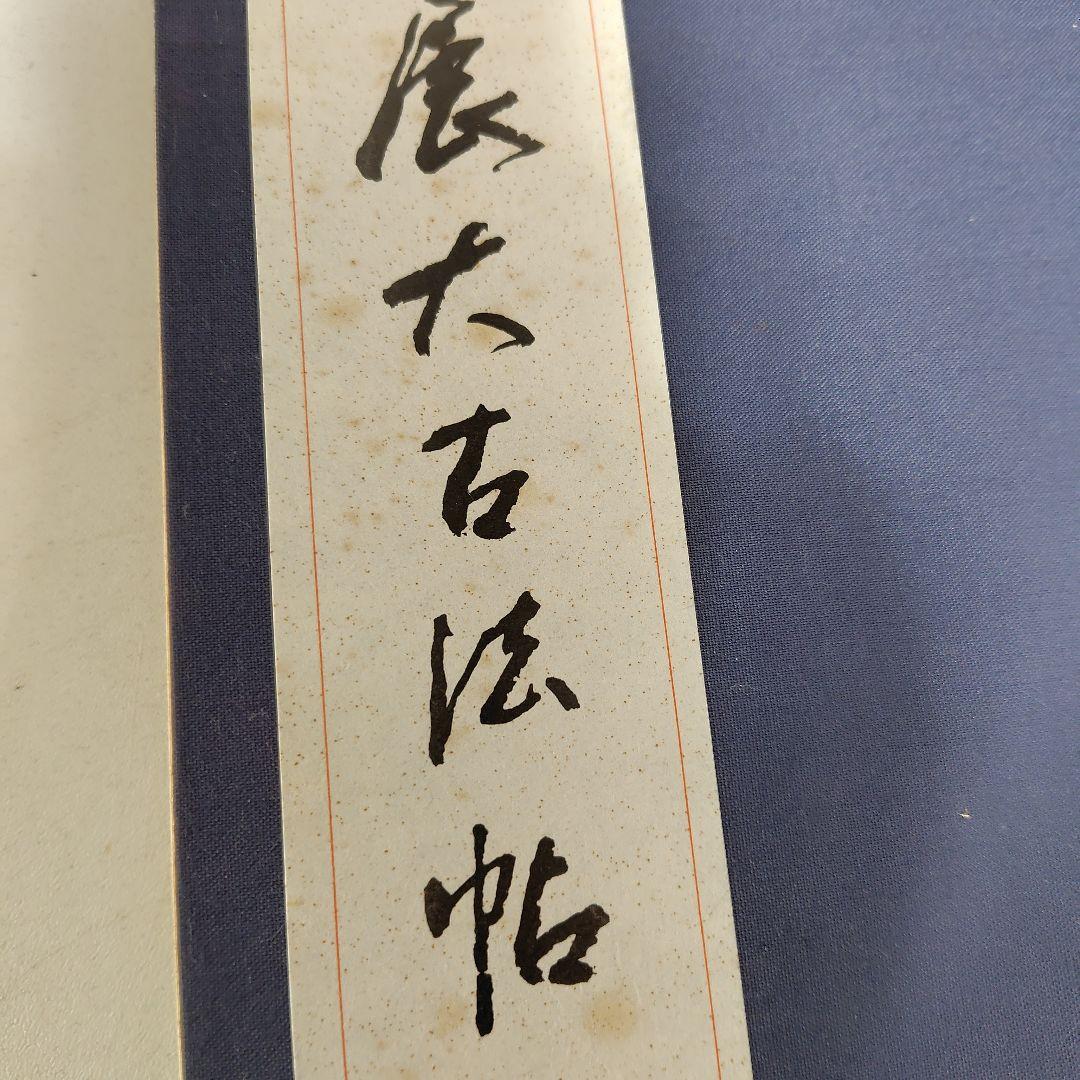 展大古法帖